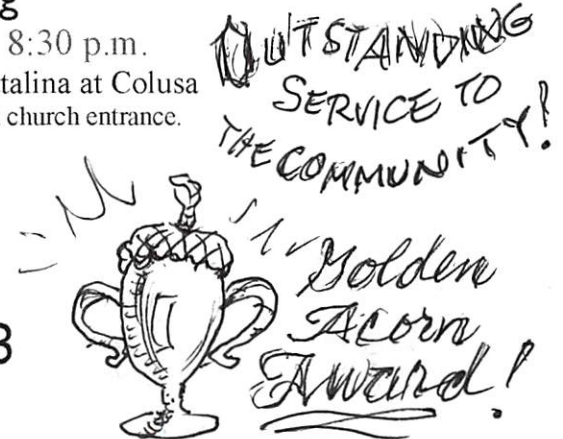 g
8:30 p.m.
talina at Colusa
church entrance.
OUTSTANDING
SERVICE TO
THE COMMUNITY!
Golden
Acorn
Award!
3